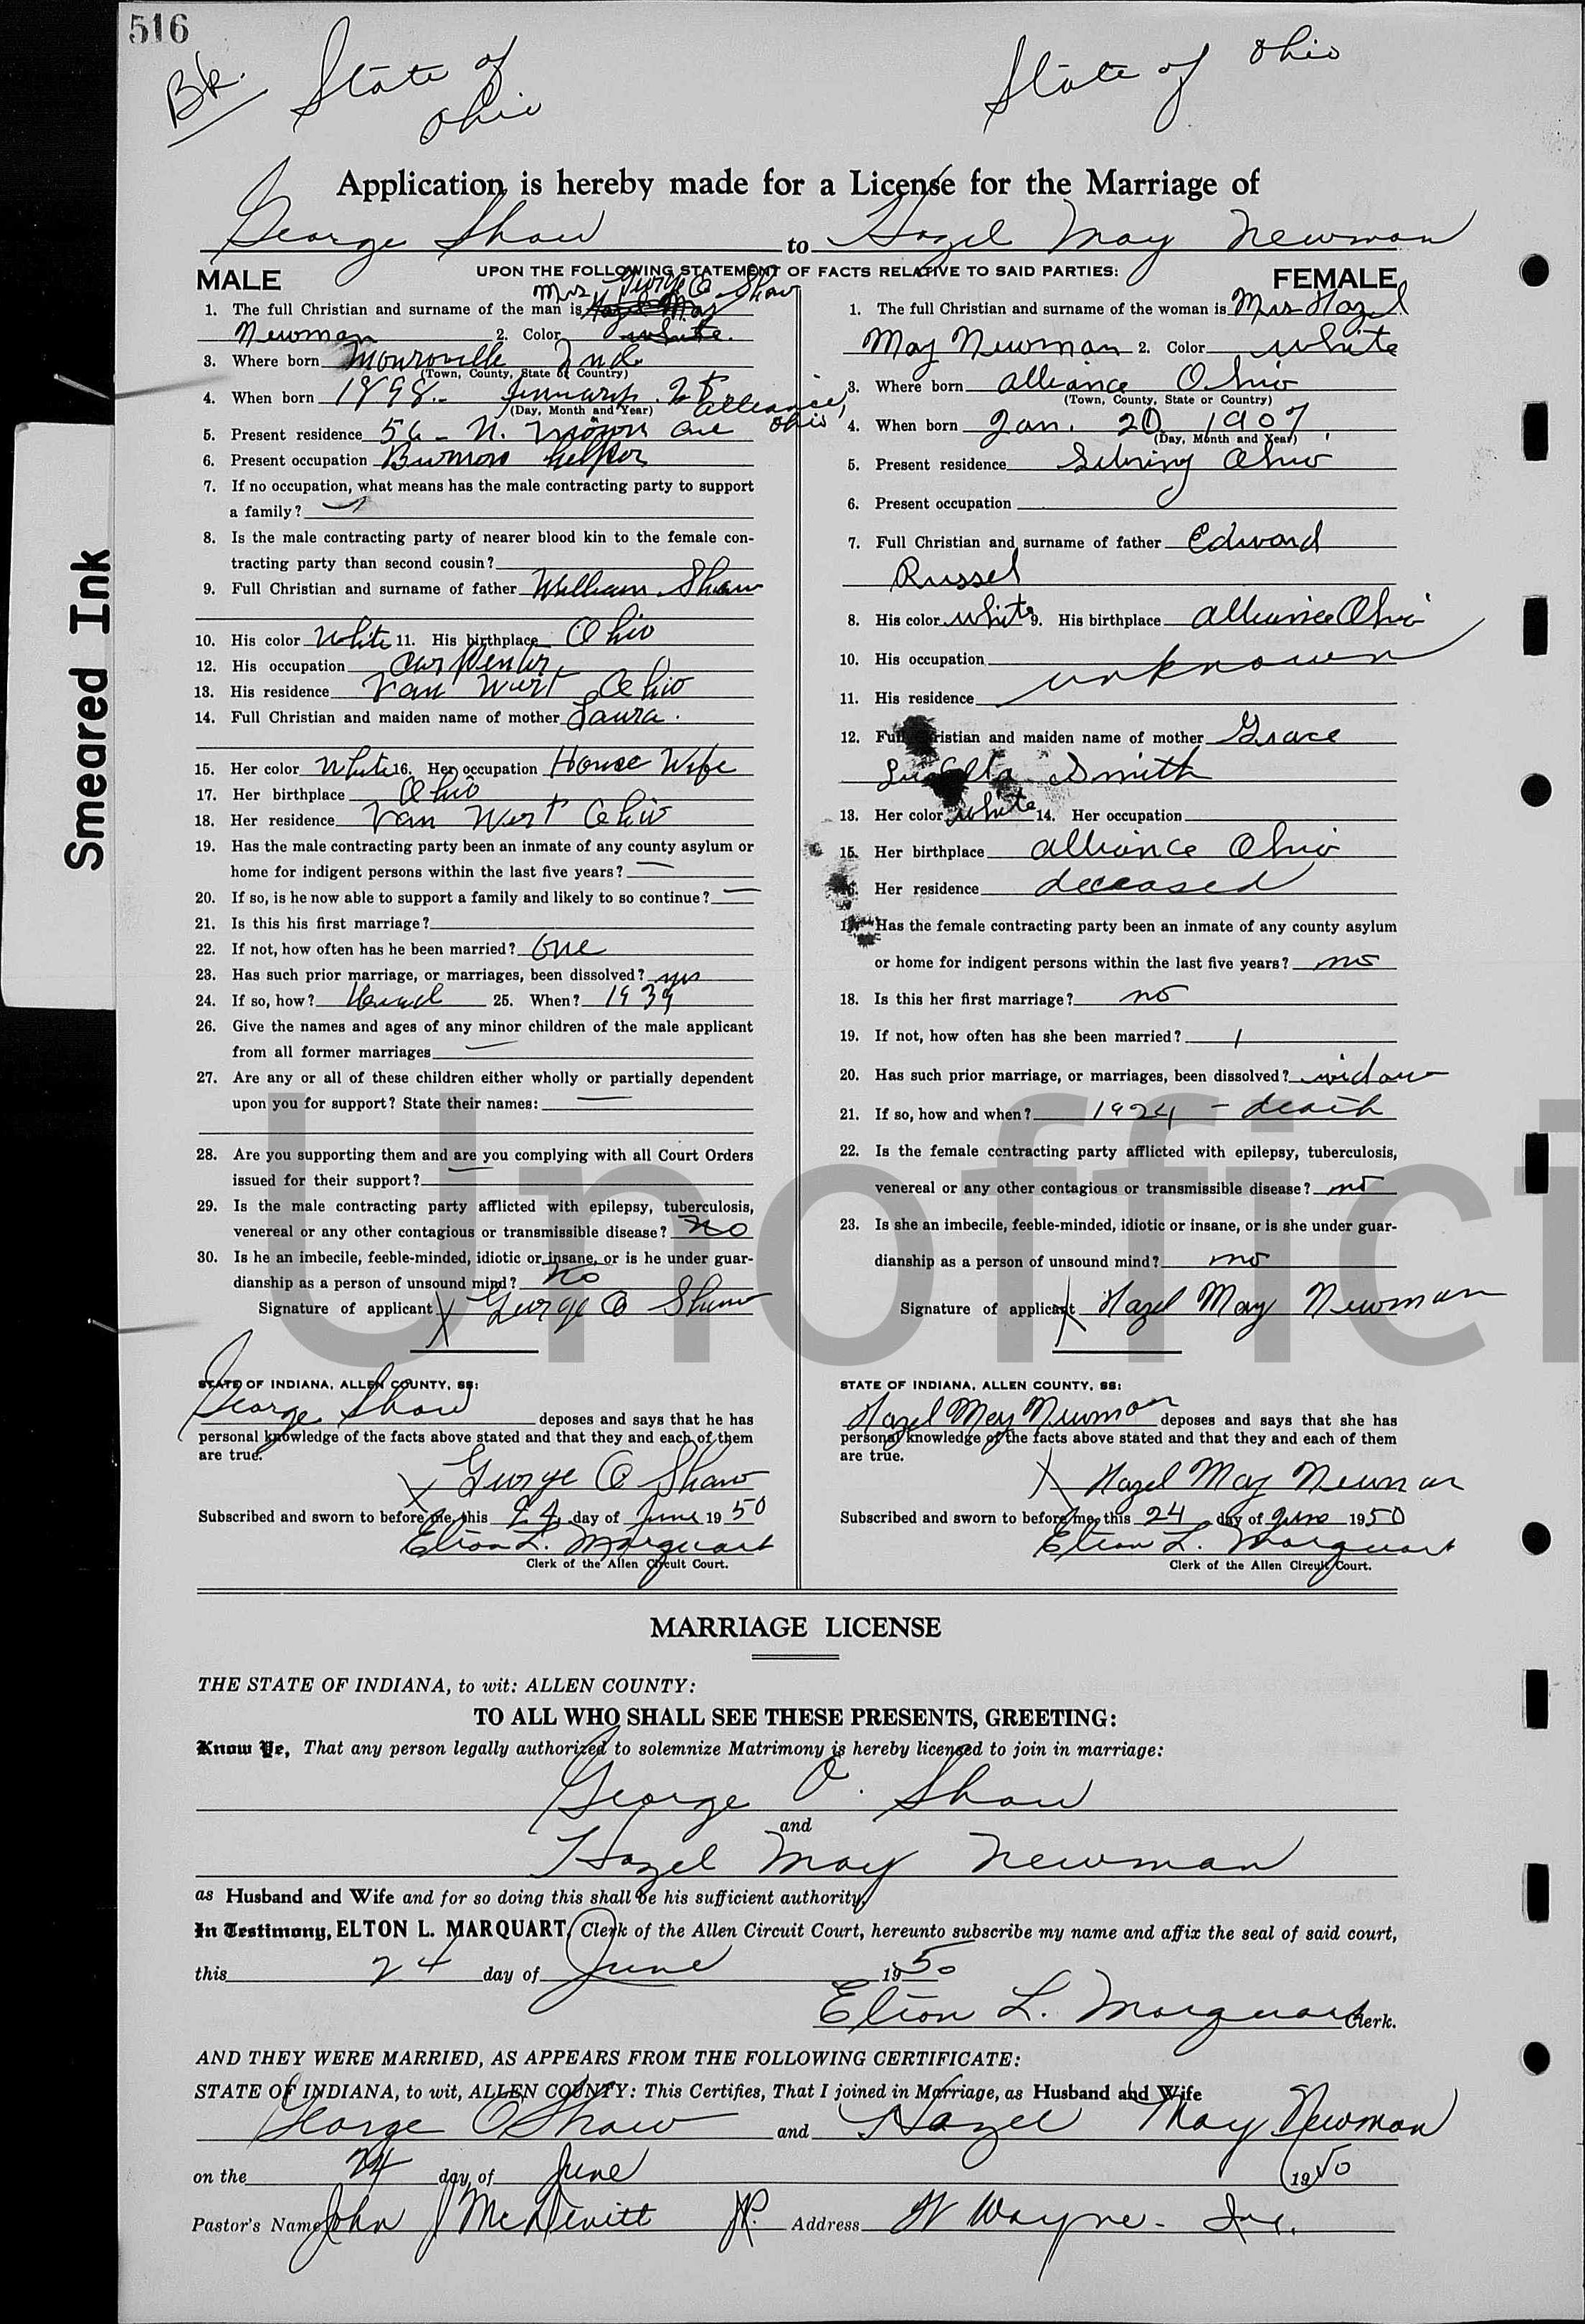 516
Bk.
State of
Ohio
State of Ohio
Application is hereby made for a License for the Marriage of
George Shaw to Hazel May Newman
UPON THE FOLLOWING STATEMENT OF FACTS RELATIVE TO SAID PARTIES:
MALE
Mrs. George O Shaw
1. The full Christian and surname of the man is Hazel May
Newman 2. Color white.
3. Where born Monroville Ind.
(Town, County, State or Country)
4. When born 1898. January
(Day, Month and Year)
Alliance, Ohio
5. Present residence 56 - N. Ave
6. Present occupation helper
7. If no occupation, what means has the male contracting party to support
a family?
8. Is the male contracting party of nearer blood kin to the female con-
tracting party than second cousin?
9. Full Christian and surname of father William Shaw
10. His color White 11. His birthplace Ohio
12. His occupation Carpenter.
13. His residence Van Wert Ohio
14. Full Christian and maiden name of mother Laura.
15. Her color White 16. Her occupation House Wife
17. Her birthplace Ohio
18. Her residence Van Wert Ohio
19. Has the male contracting party been an inmate of any county asylum or
home for indigent persons within the last five years? —
20. If so, is he now able to support a family and likely to so continue? —
21. Is this his first marriage?
22. If not, how often has he been married? One
23. Has such prior marriage, or marriages, been dissolved? yes
24. If so, how? 25. When? 1939
26. Give the names and ages of any minor children of the male applicant
from all former marriages —
27. Are any or all of these children either wholly or partially dependent
upon you for support? State their names: —
28. Are you supporting them and are you complying with all Court Orders
issued for their support? —
29. Is the male contracting party afflicted with epilepsy, tuberculosis,
venereal or any other contagious or transmissible disease? No
30. Is he an imbecile, feeble-minded, idiotic or insane, or is he under guar-
dianship as a person of unsound mind? No
Signature of applicant X George O Shaw
STATE OF INDIANA, ALLEN COUNTY, SS:
George Shaw deposes and says that he has
personal knowledge of the facts above stated and that they and each of them
are true.
X George O Shaw
Subscribed and sworn to before me, this 24 day of June 19 50
Elton L. Marquart
Clerk of the Allen Circuit Court.
FEMALE
1. The full Christian and surname of the woman is Mrs Hazel
May Newman 2. Color white
3. Where born Alliance Ohio
(Town, County, State or Country)
4. When born Jan. 20 1907
(Day, Month and Year)
5. Present residence Sebring Ohio
6. Present occupation
7. Full Christian and surname of father Edward
Russel
8. His color white 9. His birthplace Alliance Ohio
10. His occupation unknown
11. His residence
12. Full Christian and maiden name of mother Grace
Smith
13. Her color white 14. Her occupation
15. Her birthplace Alliance Ohio
16. Her residence deceased
17. Has the female contracting party been an inmate of any county asylum
or home for indigent persons within the last five years? no
18. Is this her first marriage? no
19. If not, how often has she been married? 1
20. Has such prior marriage, or marriages, been dissolved? widow
21. If so, how and when? 1924 - death
22. Is the female contracting party afflicted with epilepsy, tuberculosis,
venereal or any other contagious or transmissible disease? no
23. Is she an imbecile, feeble-minded, idiotic or insane, or is she under guar-
dianship as a person of unsound mind? no
Signature of applicant X Hazel May Newman
STATE OF INDIANA, ALLEN COUNTY, SS:
Hazel May Newman deposes and says that she has
personal knowledge of the facts above stated and that they and each of them
are true.
X Hazel May Newman
Subscribed and sworn to before me, this 24 day of June 1950
Elton L. Marquart
Clerk of the Allen Circuit Court.
MARRIAGE LICENSE
THE STATE OF INDIANA, to wit: ALLEN COUNTY:
TO ALL WHO SHALL SEE THESE PRESENTS, GREETING:
Know Ye, That any person legally authorized to solemnize Matrimony is hereby licensed to join in marriage:
George O. Shaw
and
Hazel May Newman
as Husband and Wife and for so doing this shall be his sufficient authority.
In Testimony, ELTON L. MARQUART, Clerk of the Allen Circuit Court, hereunto subscribe my name and affix the seal of said court,
this 24 day of June 1950
Elton L. Marquart Clerk.
AND THEY WERE MARRIED, AS APPEARS FROM THE FOLLOWING CERTIFICATE:
STATE OF INDIANA, to wit, ALLEN COUNTY: This Certifies, That I joined in Marriage, as Husband and Wife
George O Shaw and Hazel May Newman
on the 24 day of June 1950
Pastor's Name John J McDevitt JP. Address Ft Wayne - Ind.
Smeared Ink
Unoffici